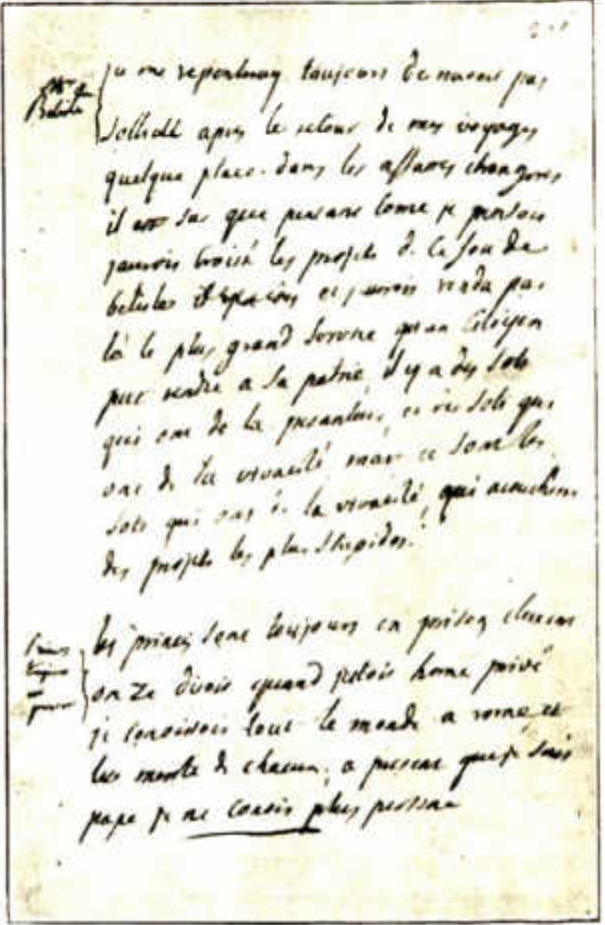 Mr de
Belisle
je me repentiray toujours de navoir pas
sollicité apres le retour de mes voyages
quelque place dans les affaires etrangeres
il est sur que pensant come je pensois
jaurois croisé les projets de ce fou de
belisle et jaurois rendu par
là le plus grand service quun Citoyen
put rendre a sa patrie, il y a des sots
qui ont de la pesanteur, et des sots qui
ont de la vivacité mais ce sont les
sots qui ont de la vivacité, qui acouchent
des projets les plus stupides.
Princes
toujours
en
prison
les princes sont toujours en prison clement
onze disoit quand jetois home privé
je conoissois tout le monde a rome et
les merite de chacun, a present que je suis
pape je ne conois plus persone